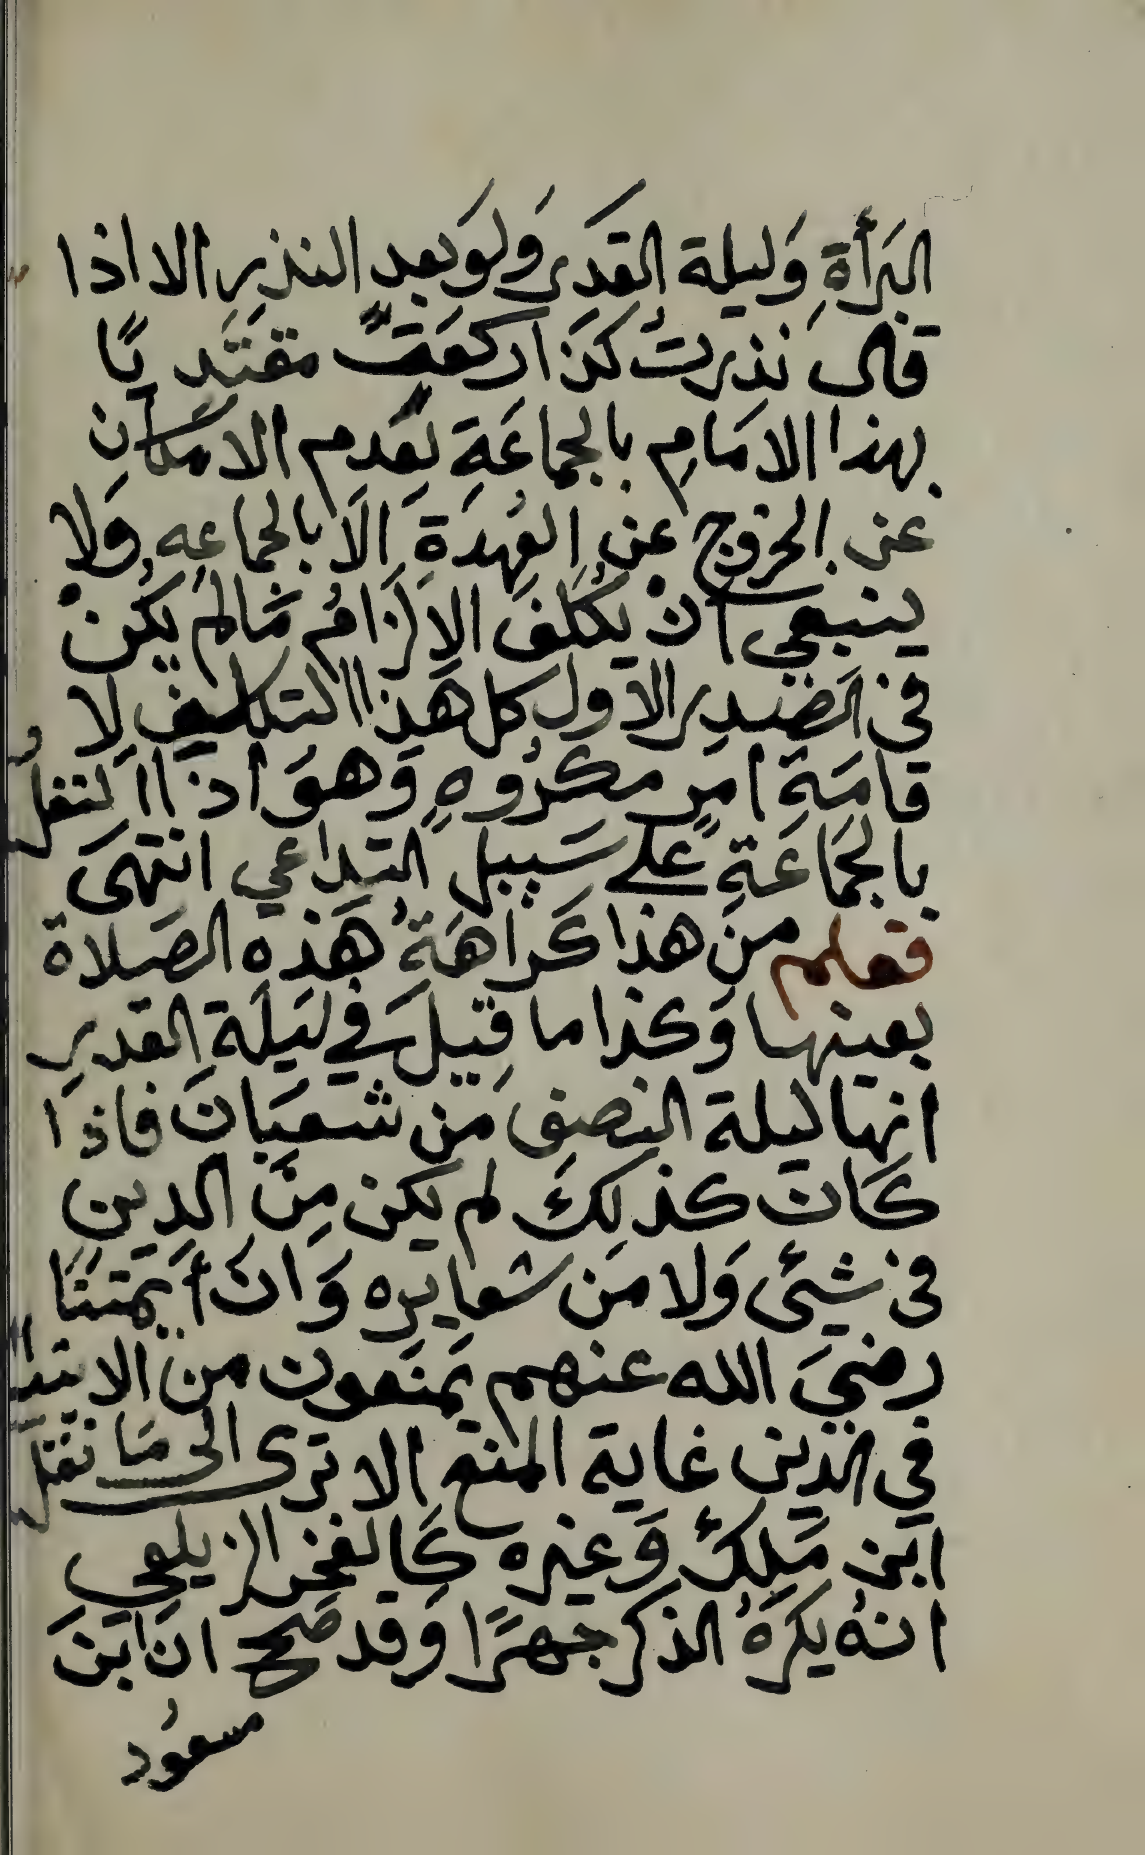 البَرأةِ وَليلة القدَرِ وَلوَبعد النذرِ الا اذا
قال نذرتُ كذا ركعَةً مقتَدِيًا
بهذا الامَامِ بالجماعَةِ لِعَدمِ الامكانِ
عن الخروج عن العُهدَةِ الّا بالجماعه وَلا
ينبغي ان يَتكَلّف الِالزَامُ مَالم يكُنْ
في الصَدرِ الاوّلِ كل هَذا التكليف لا
قامَةِ امر مكرُوهٍ وَهوَ اداا لنفل
بالجَمَاعَةِ عَلى سَبيل التداعي انتهَى
فعلم من هذا كَراهَةُ هَذه الصَلاة
بعينها وَكذا ما قيلَ في ليَلَة القدرِ
انها ليلة النصف من شعبَان فاذا
كَان كذلكَ لم يكن مِنَ الدِين
في شيئ وَلا من شعايره وَان أيمتنَا
رضيَ الله عنهم يمنَعون من الابتدا
في الدّين غاية المنع الا ترى الى مَا نقل
ابن مَلِكٍ وَغيره كَالفخر الزيلعي
انهُ يكرَهُ الذكر جهرًا وَقد صَح ان ابن
مسعُود